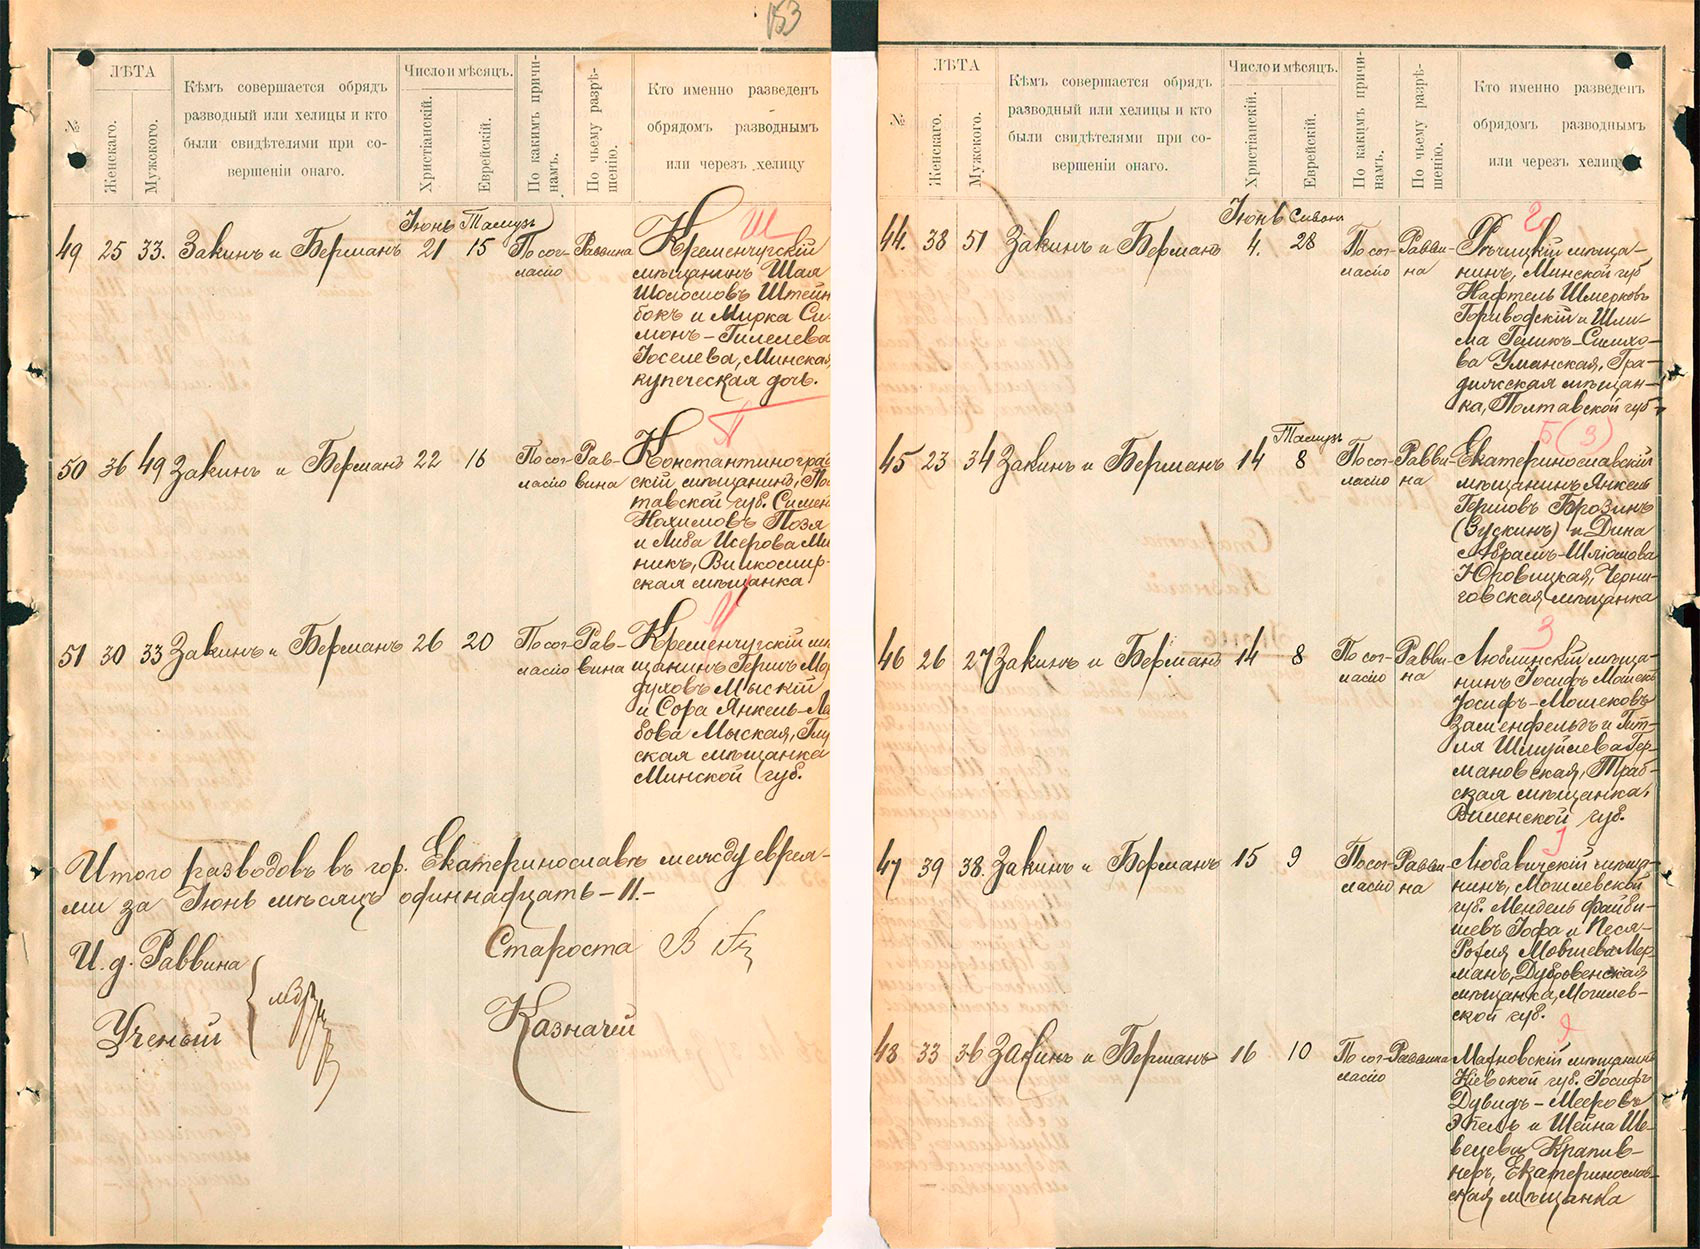 153
ЛѢТА
Числоимѣсяцъ.
№
Женскаго.
Мужского.
Кѣмъ совершается обрядъ
разводный или хелицы и кто
были свидѣтелями при со-
вершеніи онаго.
Христіанскій.
Еврейскій.
По какимъ причи-
намъ.
По чьему разрѣ-
шенію.
Кто именно разведенъ
обрядомъ разводнымъ
или черезъ хелицу
Ш
Іюнь Тамузъ
49 25 33. Закинъ и Берманъ 21 15 По сог- Раввина
ласію
Кременчугскій
мѣщанинъ Шая
Шоломовъ Штейн
бокъ и Мирка Си
монъ-Гилелева
Іоселева, Минская
купеческая дочь.
П
50 36 49 Закинъ и Берманъ 22 16 По сог- Рав-
ласію вина
Константиноград
скій мѣщанинъ, По
тавской губ. Симен
Нохимовъ Позя
и Либа Исерова Ми
никъ, Вилкомир-
ская мѣщанка
51 30 33 Закинъ и Берманъ 26 20 По сог- Рав-
ласію вина
Кременчугскій мѣ
щанинъ Гершъ Мор
духовъ Мыскій
и Сора Янкель-Ле
бова Мыская, Глу
ская мѣщанка
Минской губ.
Итого разводовъ въ гор. Екатеринославѣ между еврея-
ми за Іюнь мѣсяцъ одиннадцать - 11.-
И. д. Раввина
Староста
Ученый
Казначей
ЛѢТА
Числоимѣсяцъ.
№
Женскаго.
Мужского.
Кѣмъ совершается обрядъ
разводный или хелицы и кто
были свидѣтелями при со-
вершеніи онаго.
Христіанскій.
Еврейскій.
По какимъ причи-
намъ.
По чьему разрѣ-
шенію.
Кто именно разведенъ
обрядомъ разводнымъ
или черезъ хелицу
Г
Іюнь Сивонъ
44. 38 51 Закинъ и Берманъ 4. 28 По сог- Равви-
ласію на
Рѣчицкій мѣща-
нинъ, Минской губ
Нафтель Шмерковъ
Гориводскій и Шли-
ма Геникъ-Симхо-
ва Уманская, Гра-
дижская мѣщан-
ка, Полтавской губ-
Б (З)
Тамузъ
45 23 34 Закинъ и Берманъ 14 8 По сог- Равви-
ласію на
Екатеринославскій
мѣщанинъ Янкель
Гершовъ Брозинъ
(Зускинъ) и Дина
Абрамъ-Шліомова
Юровицкая, Черни-
говская мѣщанка
З
46 26 27 Закинъ и Берманъ 14 8 По сог- Равви-
ласію на
Люблинскій мѣща-
нинъ Іосифъ Мошек
Іосифъ-Мошековъ
Заменфельдъ и Гит-
ля Шмуйлева Гер-
мановская, Траб-
ская мѣщанка,
Виленской губ.
47 39 38. Закинъ и Берманъ 15 9 По сог- Равви-
ласію на
Любавичскій мѣща-
нинъ, Могилевской
губ. Мендель Файби-
шевъ Іофа и Песя-
Рохля Мовшева Мер-
манъ, Дубровенская
мѣщанка, Могилев-
ской губ.
48 33 36 Закинъ и Берманъ 16 10 По сог- Раввина
ласію
Махновскій мѣщанинъ
Кіевской губ. Іосифъ
Дувидъ-Мееровъ
Эпель и Шейна Ше-
велева Крапив-
неръ, Екатеринослав-
ская мѣщанка